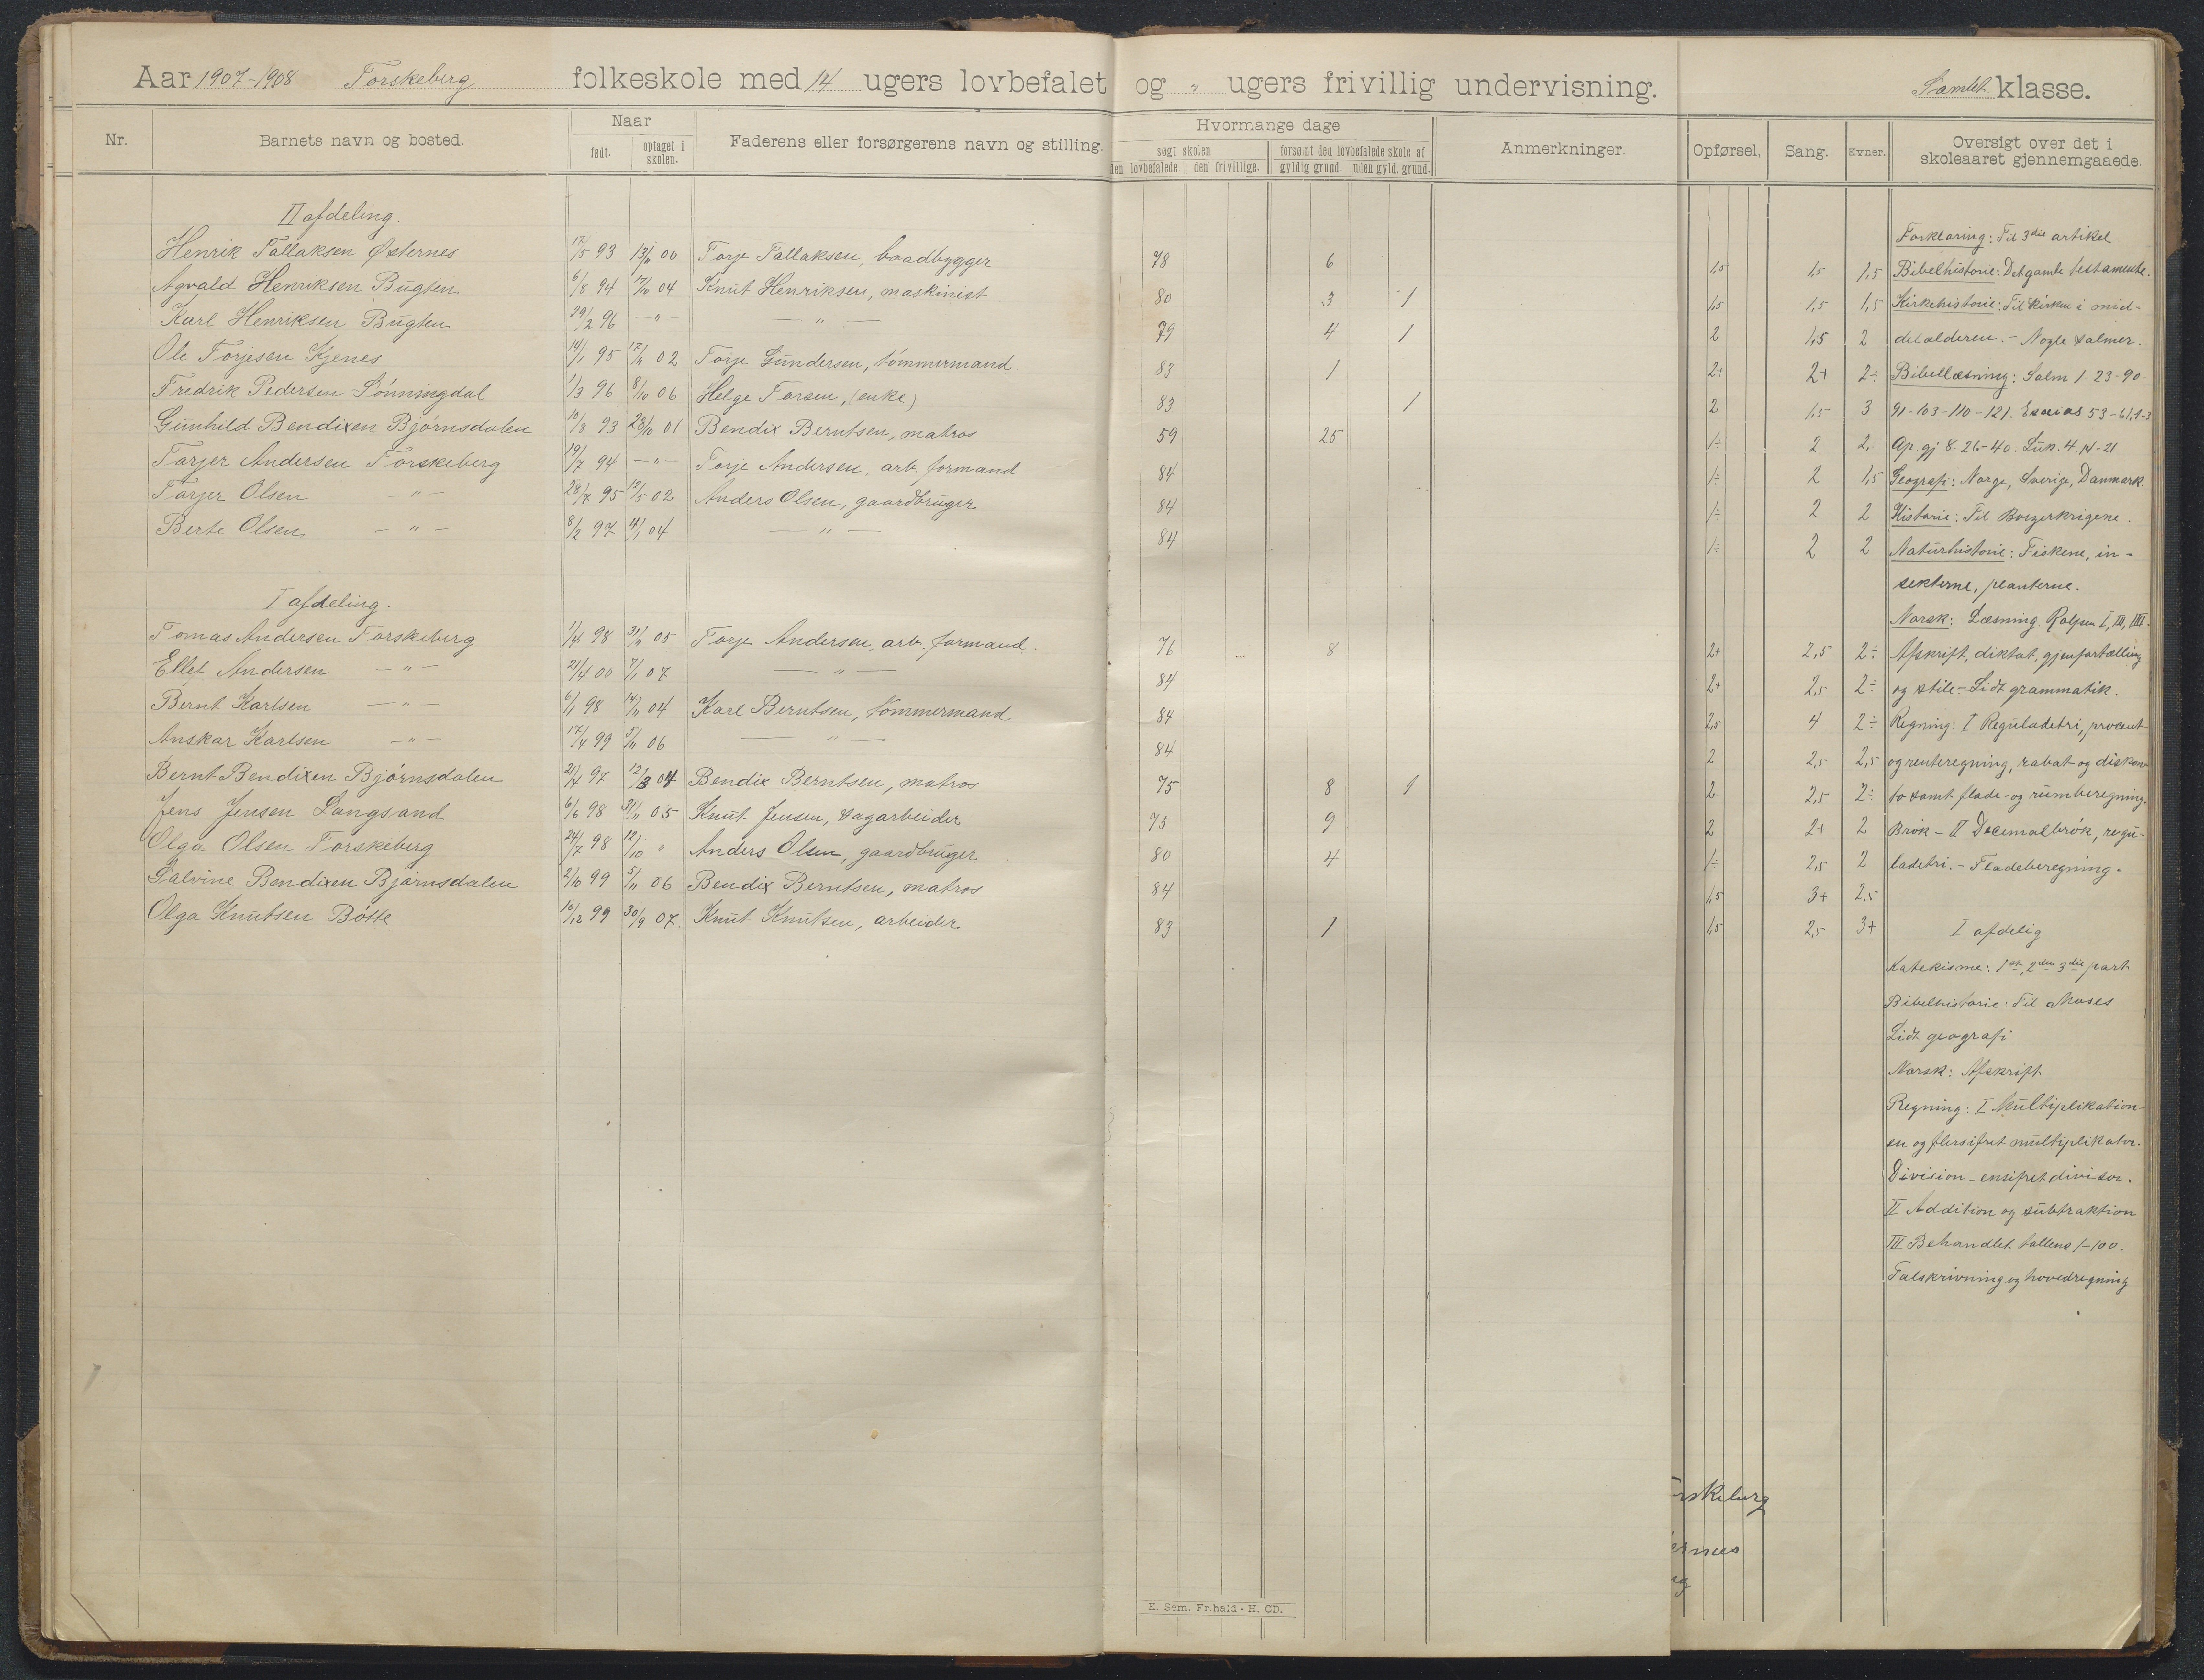 Aar 1907-1908 Torskeberg folkeskole med 14 ugers lovbefalet og „ ugers frivillig undervisning. Samlet klasse.
Nr. Barnets navn og bosted. Naar født. optaget i skolen. Faderens eller forsørgerens navn og stilling. Hvormange dage søgt skolen den lovbefalede den frivillige. forsømt den lovbefalede skole af gyldig grund. uden gyld. grund. Anmerkninger. Opførsel. Sang. Evner. Oversigt over det i skoleaaret gjennemgaaede.
II afdeling.
Henrik Tallaksen Østernes 17/5 93 13/11 00 Torje Tallaksen, baadbygger 78 6 1,5 1,5 1,5
Agvald Henriksen Bugten 6/8 94 17/10 04 Knut Henriksen, maskinist 80 3 1 1,5 1,5 1,5
Karl Henriksen Bugten 29/2 96 — " — — " — 79 4 1 2 1,5 2
Ole Torjesen Kjenes 14/1 95 17/11 02 Torje Gundersen, tømmermand 83 1 2+ 2+ 2÷
Fredrik Pedersen Lønningdal 1/3 96 8/10 06 Helge Torsen, (enke) 83 1 2 1,5 3
Gunhild Bendixen Bjørnsdalen 10/8 93 28/10 01 Bendix Berntsen, matros 59 25 1÷ 2 2,
Torjer Andersen Torskeberg 19/7 94 — " — Torje Andersen, arb. formand 84 1÷ 2 1,5
Torjer Olsen — " — 28/7 95 12/5 02 Anders Olsen, gaardbruger 84 1÷ 2 2
Berte Olsen — " — 8/2 97 4/1 04 — " — 84 1÷ 2 2
I afdeling.
Tomas Andersen Torskeberg 1/4 98 31/11 05 Torje Andersen, arb. formand. 76 8 2+ 2,5 2÷
Ellef Andersen — " — 21/4 00 7/1 07 — " — 84 2+ 2,5 2÷
Bernt Karlsen — " — 6/1 98 14/11 04 Karl Berntsen, tømmermand 84 2,5 4 2÷
Anskar Karlsen — " — 17/4 99 5/11 06 — " — 84 2 2,5 2,5
Bernt Bendixen Bjørnsdalen 21/4 97 12/3 04 Bendix Berntsen, matros 75 8 1 2 2,5 2÷
Jens Jensen Langsand 6/6 98 31/11 05 Knut Jensen, sagarbeider 75 9 2 2+ 2
Olga Olsen Torskeberg 24/7 98 12/10 " Anders Olsen, gaardbruger 80 4 1÷ 2,5 2
Salvine Bendixen Bjørnsdalen 2/10 99 5/11 06 Bendix Berntsen, matros 84 1,5 3+ 2,5
Olga Knutsen Bøtte 10/12 99 30/9 07. Knut Knutsen, arbeider 83 1 1,5 2,5 3+
Forklaring: Til 3die artikel
Bibelhistorie: Det gamle testamente.
Kirkehistorie: Til kirken i mid-
delalderen. - Nogle salmer.
Bibellæsning: Salm 1-23-90-
91-103-110-121. Esaias 53-61,1-3
Ap. gj 8. 26-40. Luk. 4. 14-21
Geografi: Norge, Sverige, Danmark.
Historie: Til Borgerkrigene.
Naturhistorie: Fiskene, in-
sekterne, planterne.
Norsk: Læsning. Rolfsen I, III, IIII.
Afskrift, diktat, gjenfortælling
og stile - Lidt grammatik.
Regning: I Reguladetri, procent-
og renteregning, rabat og diskon-
to samt flade- og rumberegning.
Brøk - II Decimalbrøk, regu-
ladetri. - Fladeberegning.
I afdelig
Katekisme: 1ste, 2den 3die part
Bibelhistorie: Til Moses
Lidt geografi
Norsk: Afskrift
Regning: I Multiplikation-
en og flersifret multiplikator.
Division - ensifret divisor.
II Addition og subtraktion
III Behandlet tallene 1-100.
Talskrivning og hovedregning
rskeberg
ernes
E. Sem. Fr.hald - H. CD.